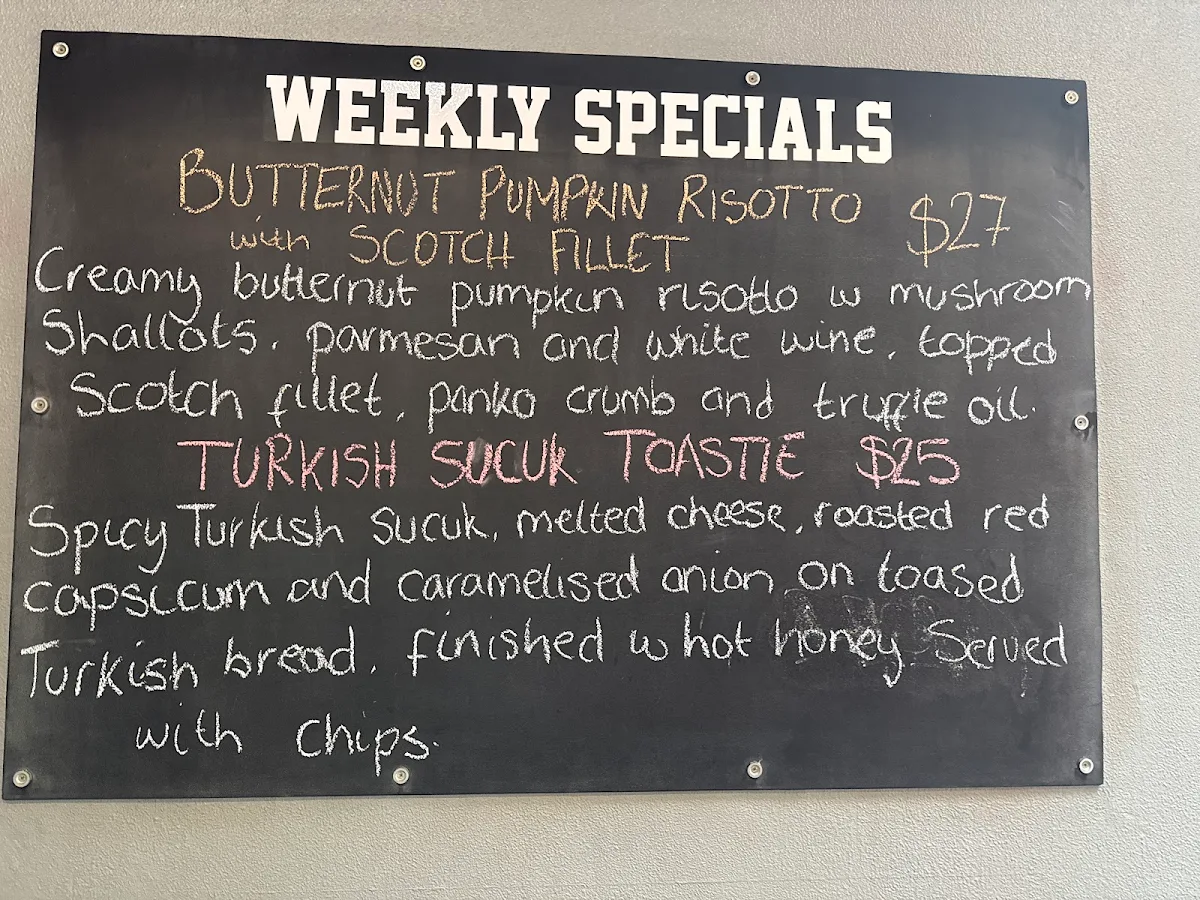 WEEKLY SPECIALS
BUTTERNUT PUMPKIN RISOTTO $27
with SCOTCH FILLET
Creamy butternut pumpkin risotto w mushroom
Shallots, parmesan and white wine, topped
Scotch fillet, panko crumb and truffle oil.
TURKISH SUCUK TOASTIE $25
Spicy Turkish sucuk, melted cheese, roasted red
capsicum and caramelised onion on toased
Turkish bread, finished w hot honey. Served
with chips.